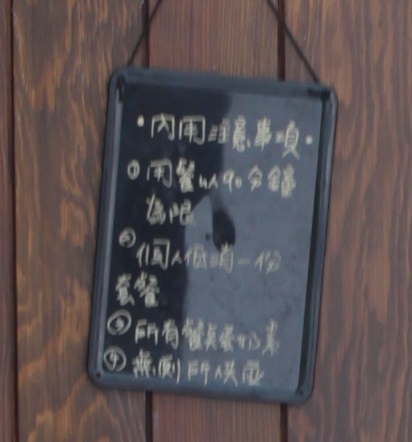 •內用注意事項•
①用餐以90分鐘
為限
②個人低消一份
套餐
③所有餐具蛋奶素
④無廁所